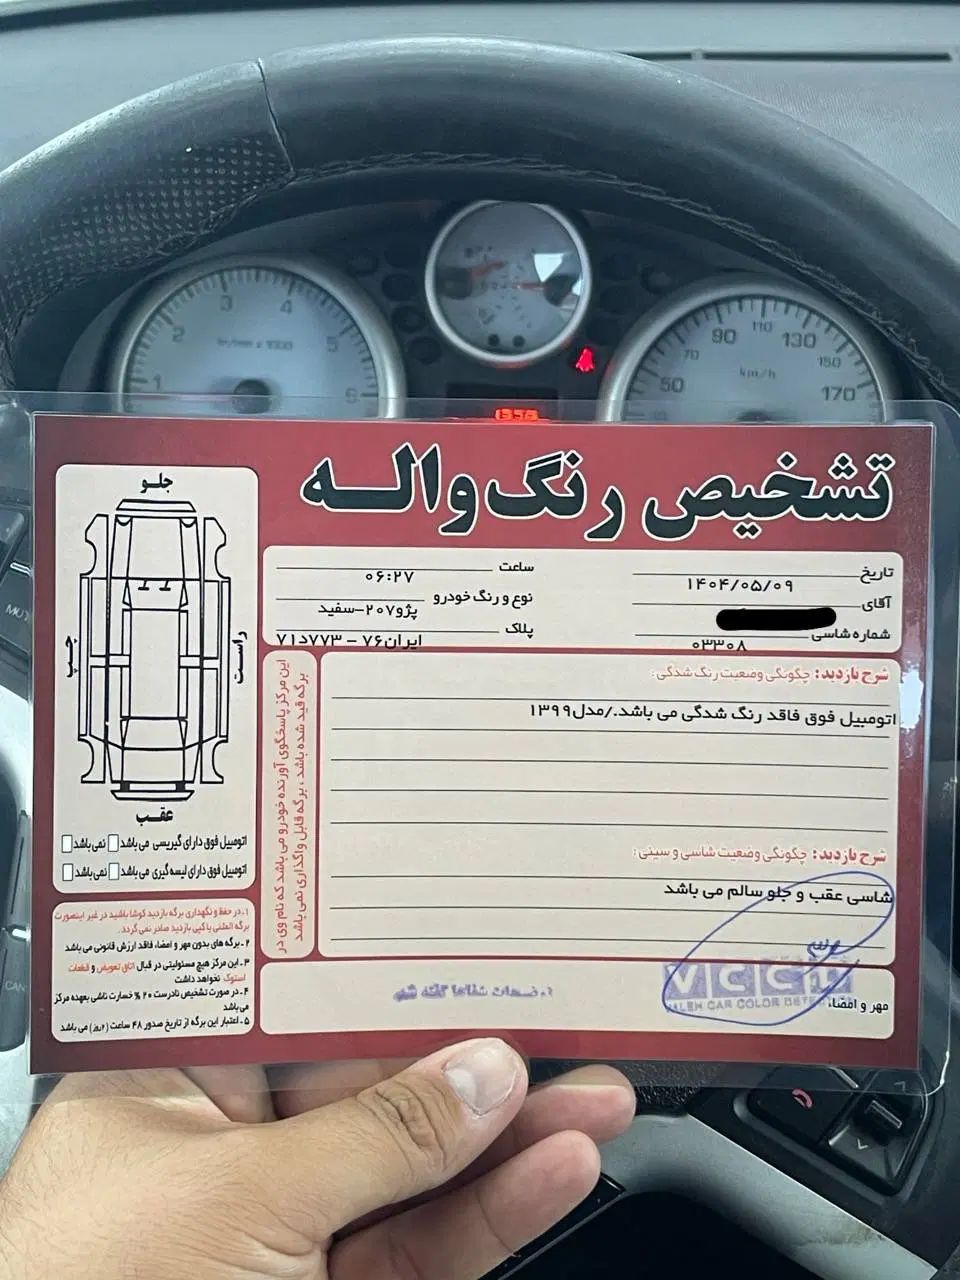 3
4
2
5
1
6
tr/min x 1000
90
110
130
70
150
km/h
50
170
تشخیص رنگ واله
جلو
چپ
راست
عقب
تاریخ ۱۴۰۴/۰۵/۰۹
ساعت ۰۶:۲۷
آقای
نوع و رنگ خودرو پژو۲۰۷-سفید
شماره شاسی ۰۳۳۰۸
پلاک ایران۷۶ - ۷۷۳د۷۱
شرح بازدید: چگونگی وضعیت رنگ شدگی:
اتومبیل فوق فاقد رنگ شدگی می باشد./مدل۱۳۹۹
شرح بازدید: چگونگی وضعیت شاسی و سینی:
شاسی عقب و جلو سالم می باشد
این مرکز پاسخگوی آورنده خودرو می باشد که نام وی در
برگه قید شده باشد، برگه قابل واگذاری نمی باشد
اتومبیل فوق دارای گیربسی می باشد نمی باشد
اتومبیل فوق دارای لیسه گیری می باشد نمی باشد
۱ـ در حفظ و نگهداری برگه بازدید کوشا باشید در غیر اینصورت
برگه المثنی یا کپی بازدید صادر نمی گردد.
۲ـ برگه های بدون مهر و امضاء فاقد ارزش قانونی می باشد
۳ـ این مرکز هیچ مسئولیتی در قبال اتاق تعویض و قطعات
استوک نخواهد داشت
۴ـ در صورت تشخیص نادرست ۲۰ % خسارت ناشی بعهده مرکز
می باشد
۵ـ اعتبار این برگه از تاریخ صدور ۴۸ ساعت (۲روز) می باشد
مهر و امضاء
VCCT
VALEH CAR COLOR